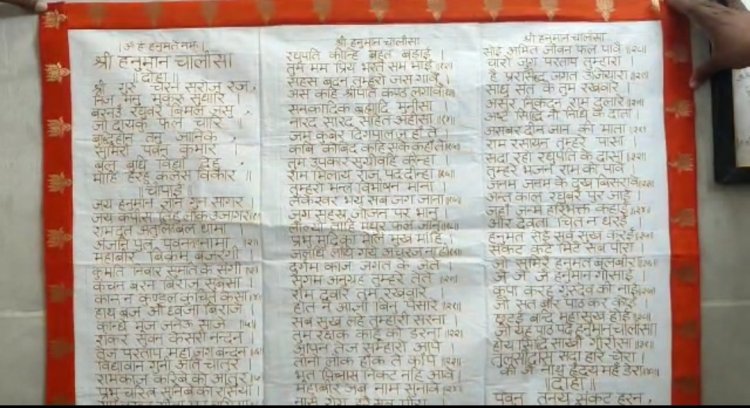 ।ॐ हं हनुमते नमः।
श्री हनुमान चालीसा
॥दोहा॥
श्री गुरु चरन सरोज रज,
निज मनु मुकुरु सुधारि
बरनउं रघुबर बिमल जसु
जो दायकु फल चारि
सुमिरौं पवन कुमार
बल बुधि विद्या देहु
मोहि हरहु कलेस विकार ॥
॥चौपाई॥
जय हनुमान ज्ञान गुन सागर
जय कपीस तिहुं लोक उजागर
रामदूत अतुलित बल धामा
अंजनि पुत्र पवनसुत नामा
महाबीर बिक्रम बजरंगी
कुमति निवार सुमति के संगी
कंचन बरन बिराज सुबेसा
कानन कुण्डल कुंचित केसा
हाथ बज्र औ ध्वजा बिराजे
कान्धे मूंज जनेऊ साजे
शंकर सुवन केसरी नन्दन
तेज परताप महा जग बन्दन
विद्यावान गुनी अति चातुर
रामकाज करिबे को आतुर
प्रभु चरित्र सुनिबे को रसिया
श्री हनुमान चालीसा
रघुपति कीन्हि बहुत बड़ाई ।
तुम मम प्रिय भरत सम भाई
सहस बदन तुम्हरो जस गावें ।
अस कहि श्रीपति कण्ठ लगावें
सनकादिक ब्रह्मादि मुनीसा ।
नारद सारद सहित अहीसा
जम कुबेर दिगपाल जहां ते ।
कबि कोबिद कहि सके कहां ते
तुम उपकार सुग्रीवहिं कीन्हा ।
राम मिलाय राज पद दीन्हा
तुम्हरो मन्त्र विभीषन माना ।
लंकेस्वर भए सब जग जाना
जुग सहस्र जोजन पर भानु ।
लील्यो ताहि मधुर फल जानू
प्रभु मुद्रिका मेलि मुख माहि ।
जलधि लांघि गये अचरज नाही
दुर्गम काज जगत के जेते ।
सुगम अनुग्रह तुम्हरे तेते
राम दुवारे तुम रखवारे ।
होत न आज्ञा बिनु पैसारे
सब सुख लहै तुम्हारी सरना ।
तुम रक्षक काहू को डरना
आपन तेज सम्हारो आपे ।
तीनों लोक हांक ते कांपे
भूत पिशाच निकट नहिं आवे ।
महाबीर जब नाम सुनावे
श्री हनुमान चालीसा
सोई अमित जीवन फल पावे
चारों जुग परताप तुम्हारा ।
है प्रसिद्ध जगत उजियारा
साधु संत के तुम रखवारे ।
असुर निकंदन राम दुलारे
अष्ट सिद्धि नौ निधि के दाता ।
अस बर दीन जानकी माता
राम रसायन तुम्हरे पासा ।
सदा रहो रघुपति के दासा
तुम्हरे भजन राम को पावे ।
जनम जनम के दुख बिसरावे
अन्त काल रघुबर पुर जाई ।
जहां जन्म हरिभक्त कहाई
और देवता चित न धरई ।
हनुमत सेई सर्ब सुख करई
संकट कटे मिटे सब पीरा ।
जो सुमिरे हनुमत बलबीरा
जै जै जै हनुमान गोसाई ।
कृपा करहु गुरुदेव की नाई
जो सत बार पाठ कर कोई ।
छूटहि बंदि महासुख होई
जो यह पाठ पढ़े हनुमान चालीसा ।
होय सिद्धि साखी गौरीसा
तुलसीदास सदा हरि चेरा ।
कीजै नाथ हृदय मंह डेरा
॥दोहा॥
पवन तनय संकट हरन,